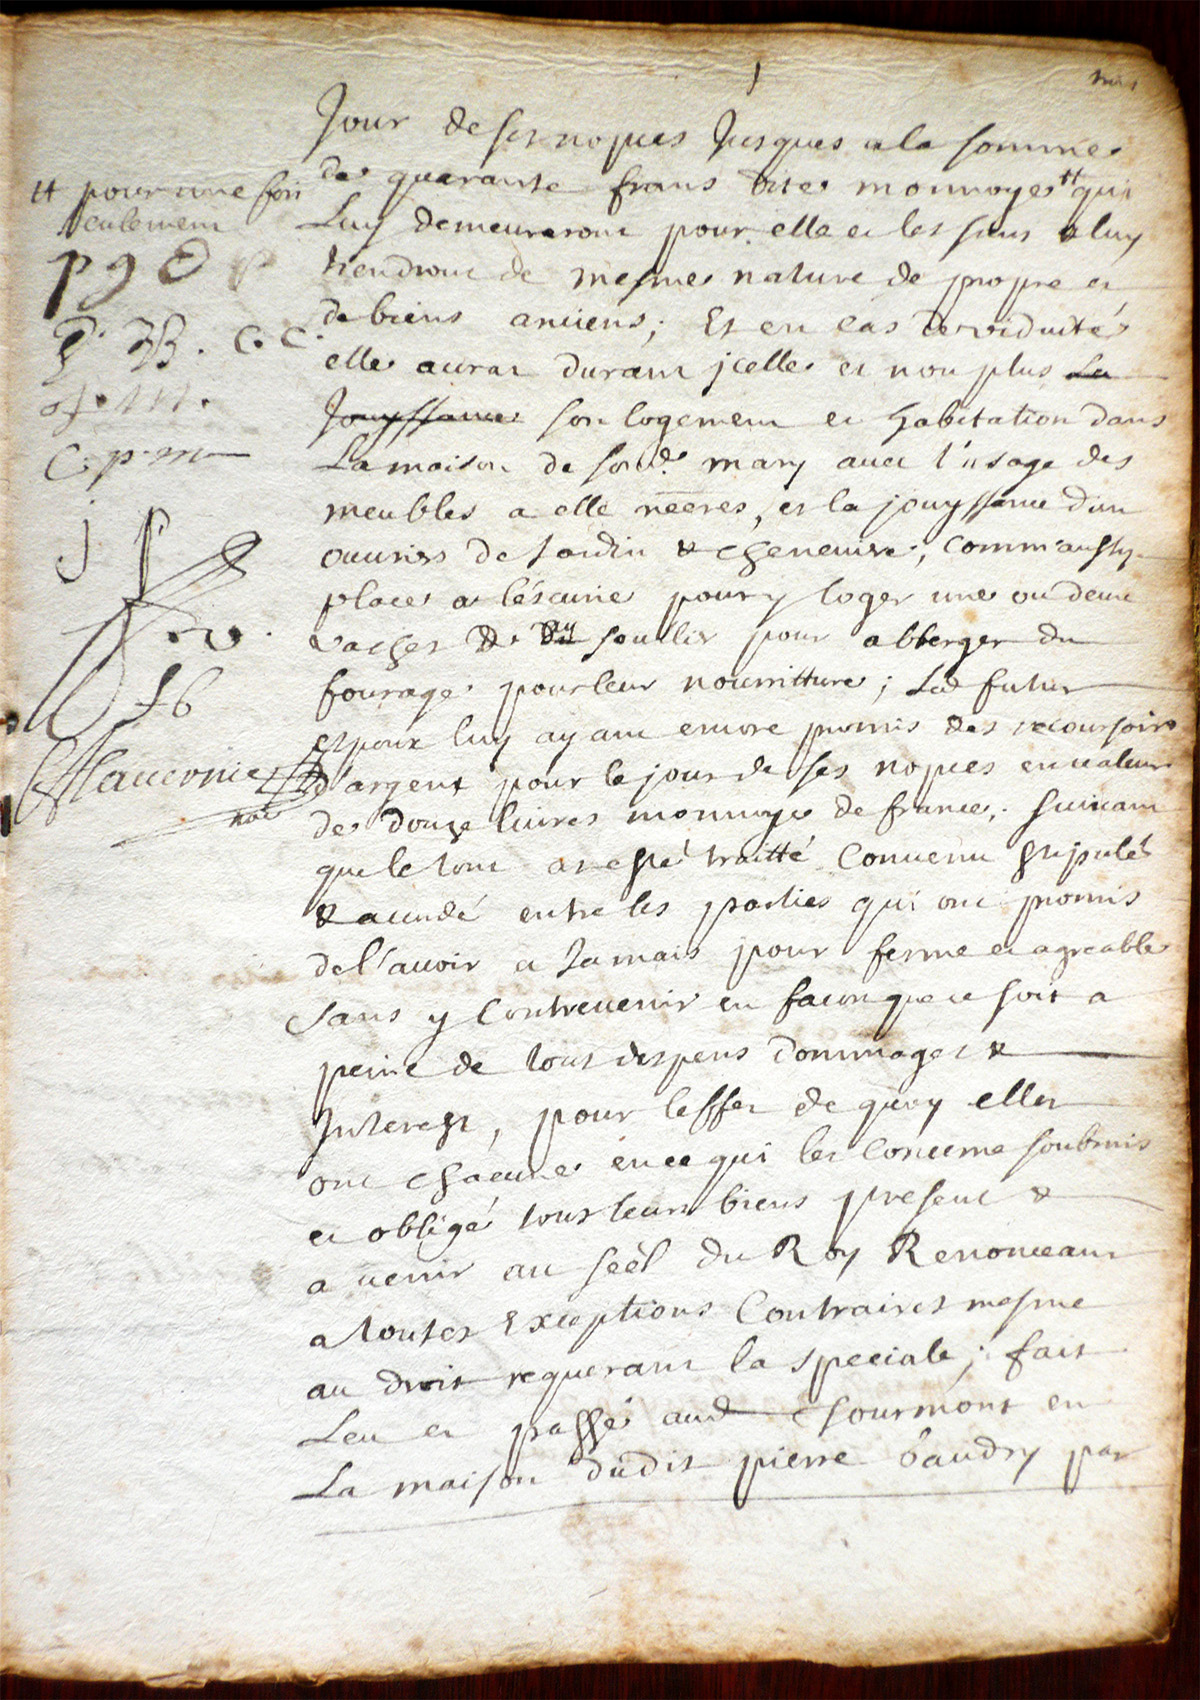 Jour de ses nopces Jusques a la somme
de quarante frans dite monnoye # qui
# pour une fois
seulement
Luy demeureront pour elle et les siens & luy
tiendront de mesme nature de propre et
de biens anciens; Et en cas de viduité
elle aurat durant jcelle et non plus La
Jouyssance son logement et habitation dans
La maison de sond. mary avec l'usage des
meubles a elle necres, et la jouyssance d'un
ouvries de Jardin & cheneuire; comm'aussy
place a l'éscurie pour y loger une ou deux
vaches & soulier pour abberger du
fourage pour leur nourritture; Led futur
espoux luy ayant encore promis des
d'argent pour le jour de ses nopces en valeur
de douze liures monnoye de france; suivant
que le tout at esté traitté Convenu stipulé
& accordé entre les parties qui ont promis
de l'avoir a Jamais pour ferme et agreable
sans y Contrevenir en facon que ce soit a
peine de tous despens dommages &
Interest, pour l'effet de quoy elles
ont chacune en ce qui les concerne soubmis
et obligé tous leurs biens present &
a venir au séel du Roy Renonceant
a toutes Exceptions Contraires mesme
au droit requerant la speciale; fait
Leu et passé aud Chourmont en
La maison dudit pierre baudry par
P. B. C. C.
C. p. m
J P